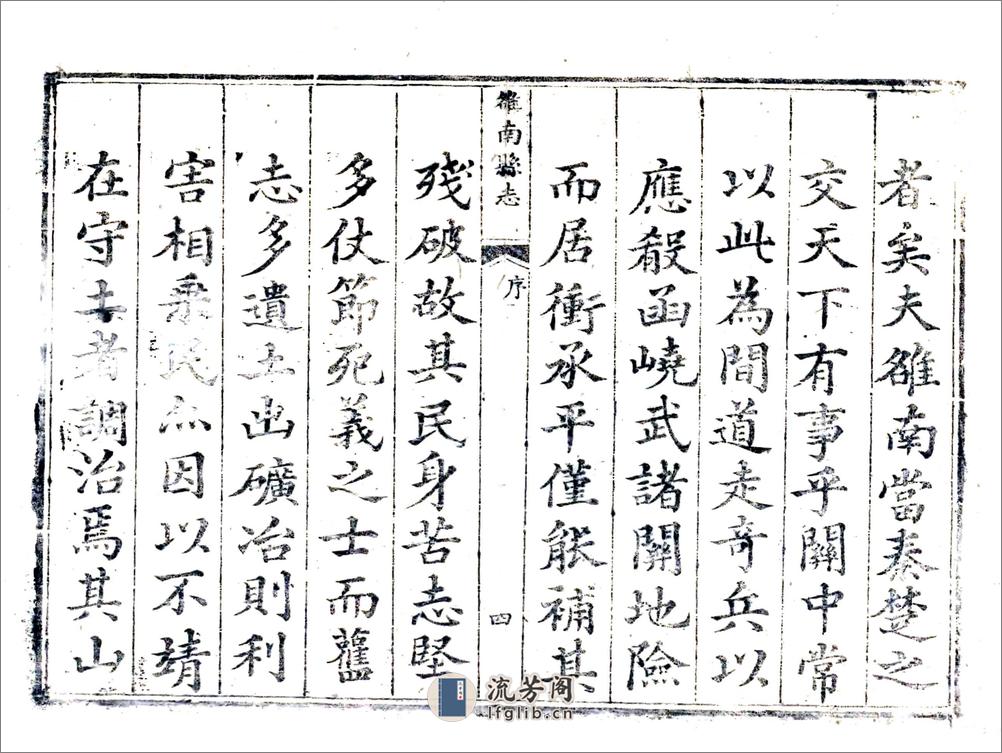 者矣夫雒南當秦楚之
交天下有事乎關中常
以此為間道走奇兵以
應殽函嶢武諸關地險
而居衝承平僅能補其
雒南縣志
序
四
殘破故其民身苦志堅
多仗節死義之士而舊
志多遺土出礦冶則利
害相乗民亦因以不靖
在守土者調治焉其山
流芳阁
lfglib.cn